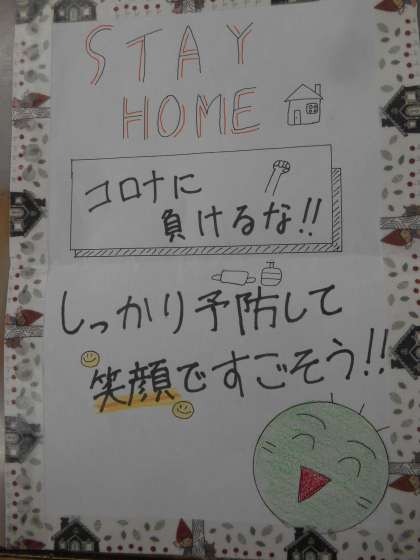 STAY
HOME
コロナに
負けるな!!
しっかり予防して
笑顔ですごそう!!